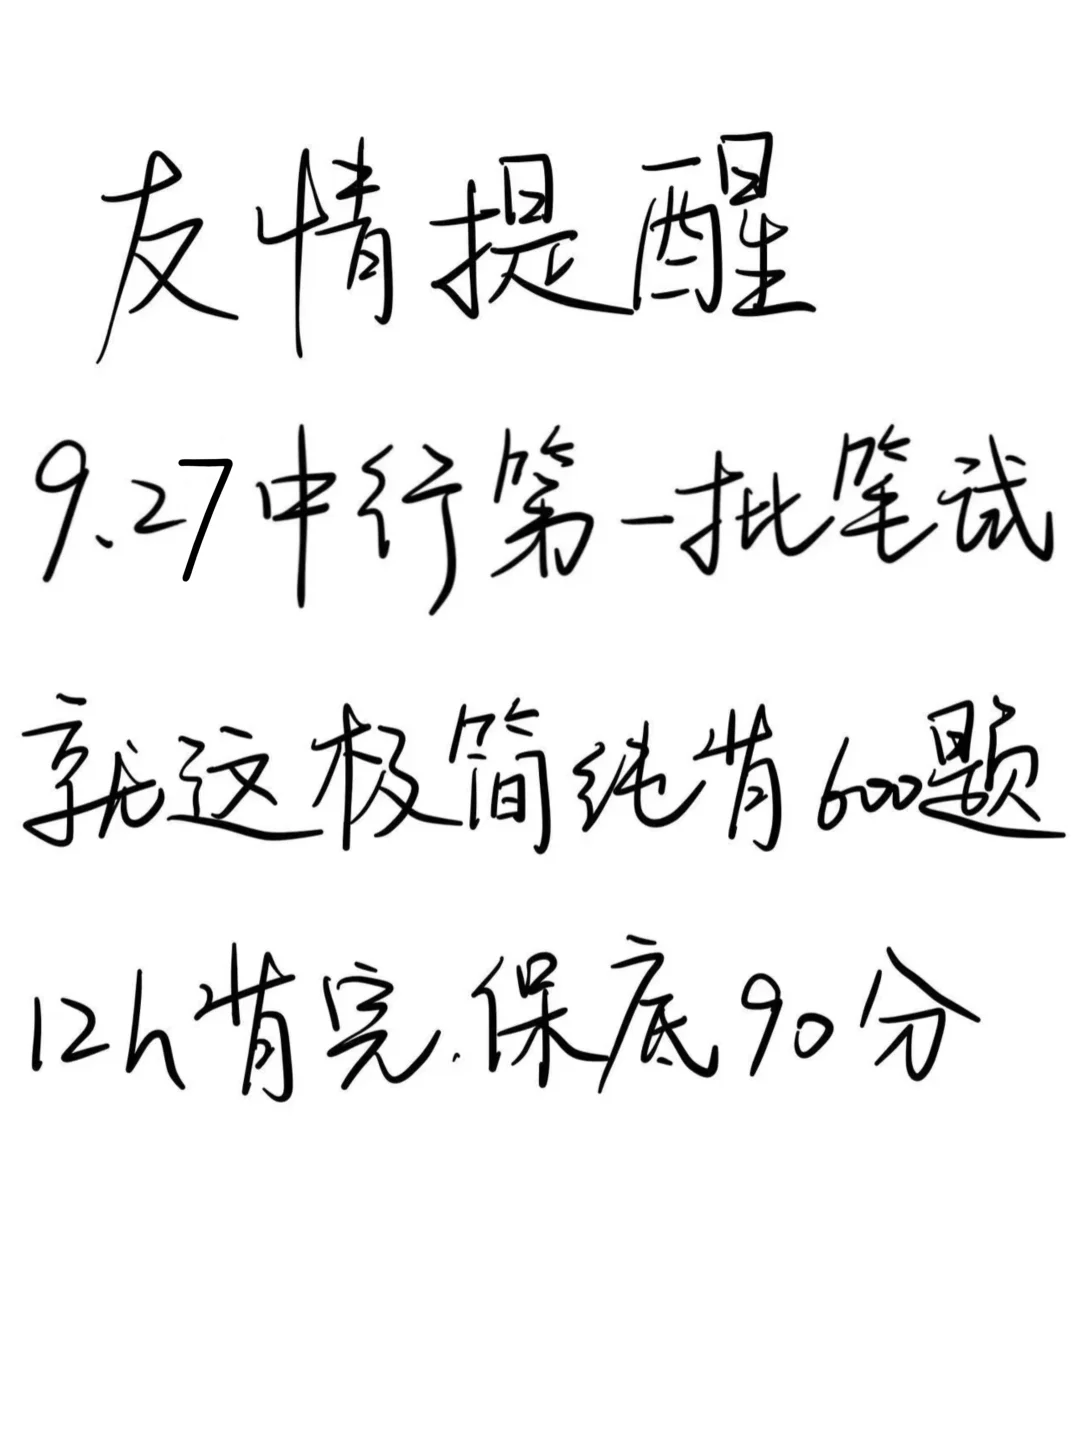 友情提醒
9.27中行第一批笔试
就这极简纯背600题
12h背完.保底90分